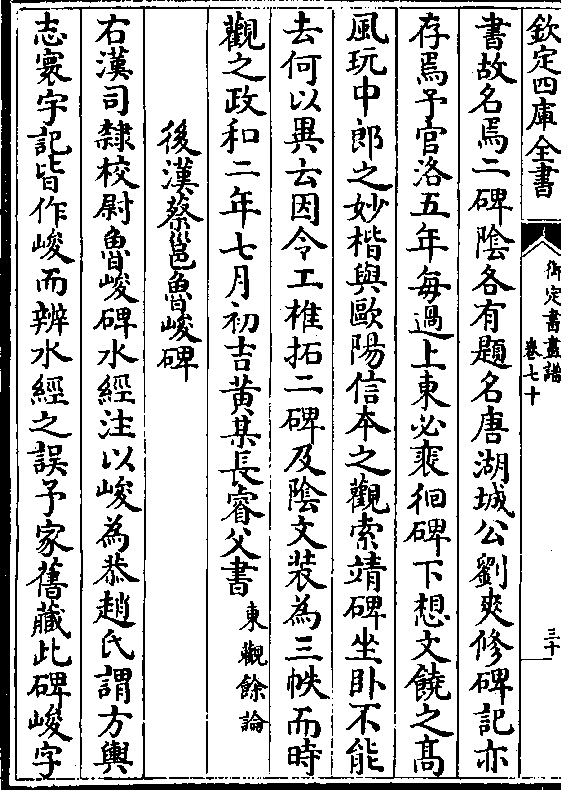 欽定四庫全書
御定書畫譜
卷七十
三十
書故名焉二碑陰各有題名唐湖城公劉爽修碑記亦
存焉予官洛五年每過上東必裵徊碑下想文饒之髙
風玩中郎之妙楷與歐陽信本之觀索靖碑坐卧不能
去何以異云因令工椎拓二碑及陰文装為三帙而時
觀之政和二年七月初吉黄某長睿父書東觀餘論
後漢蔡邕魯峻碑
右漢司隸校尉魯峻碑水經注以峻為恭趙氏謂方輿
志寰宇記皆作峻而辨水經之誤予家舊藏此碑峻字